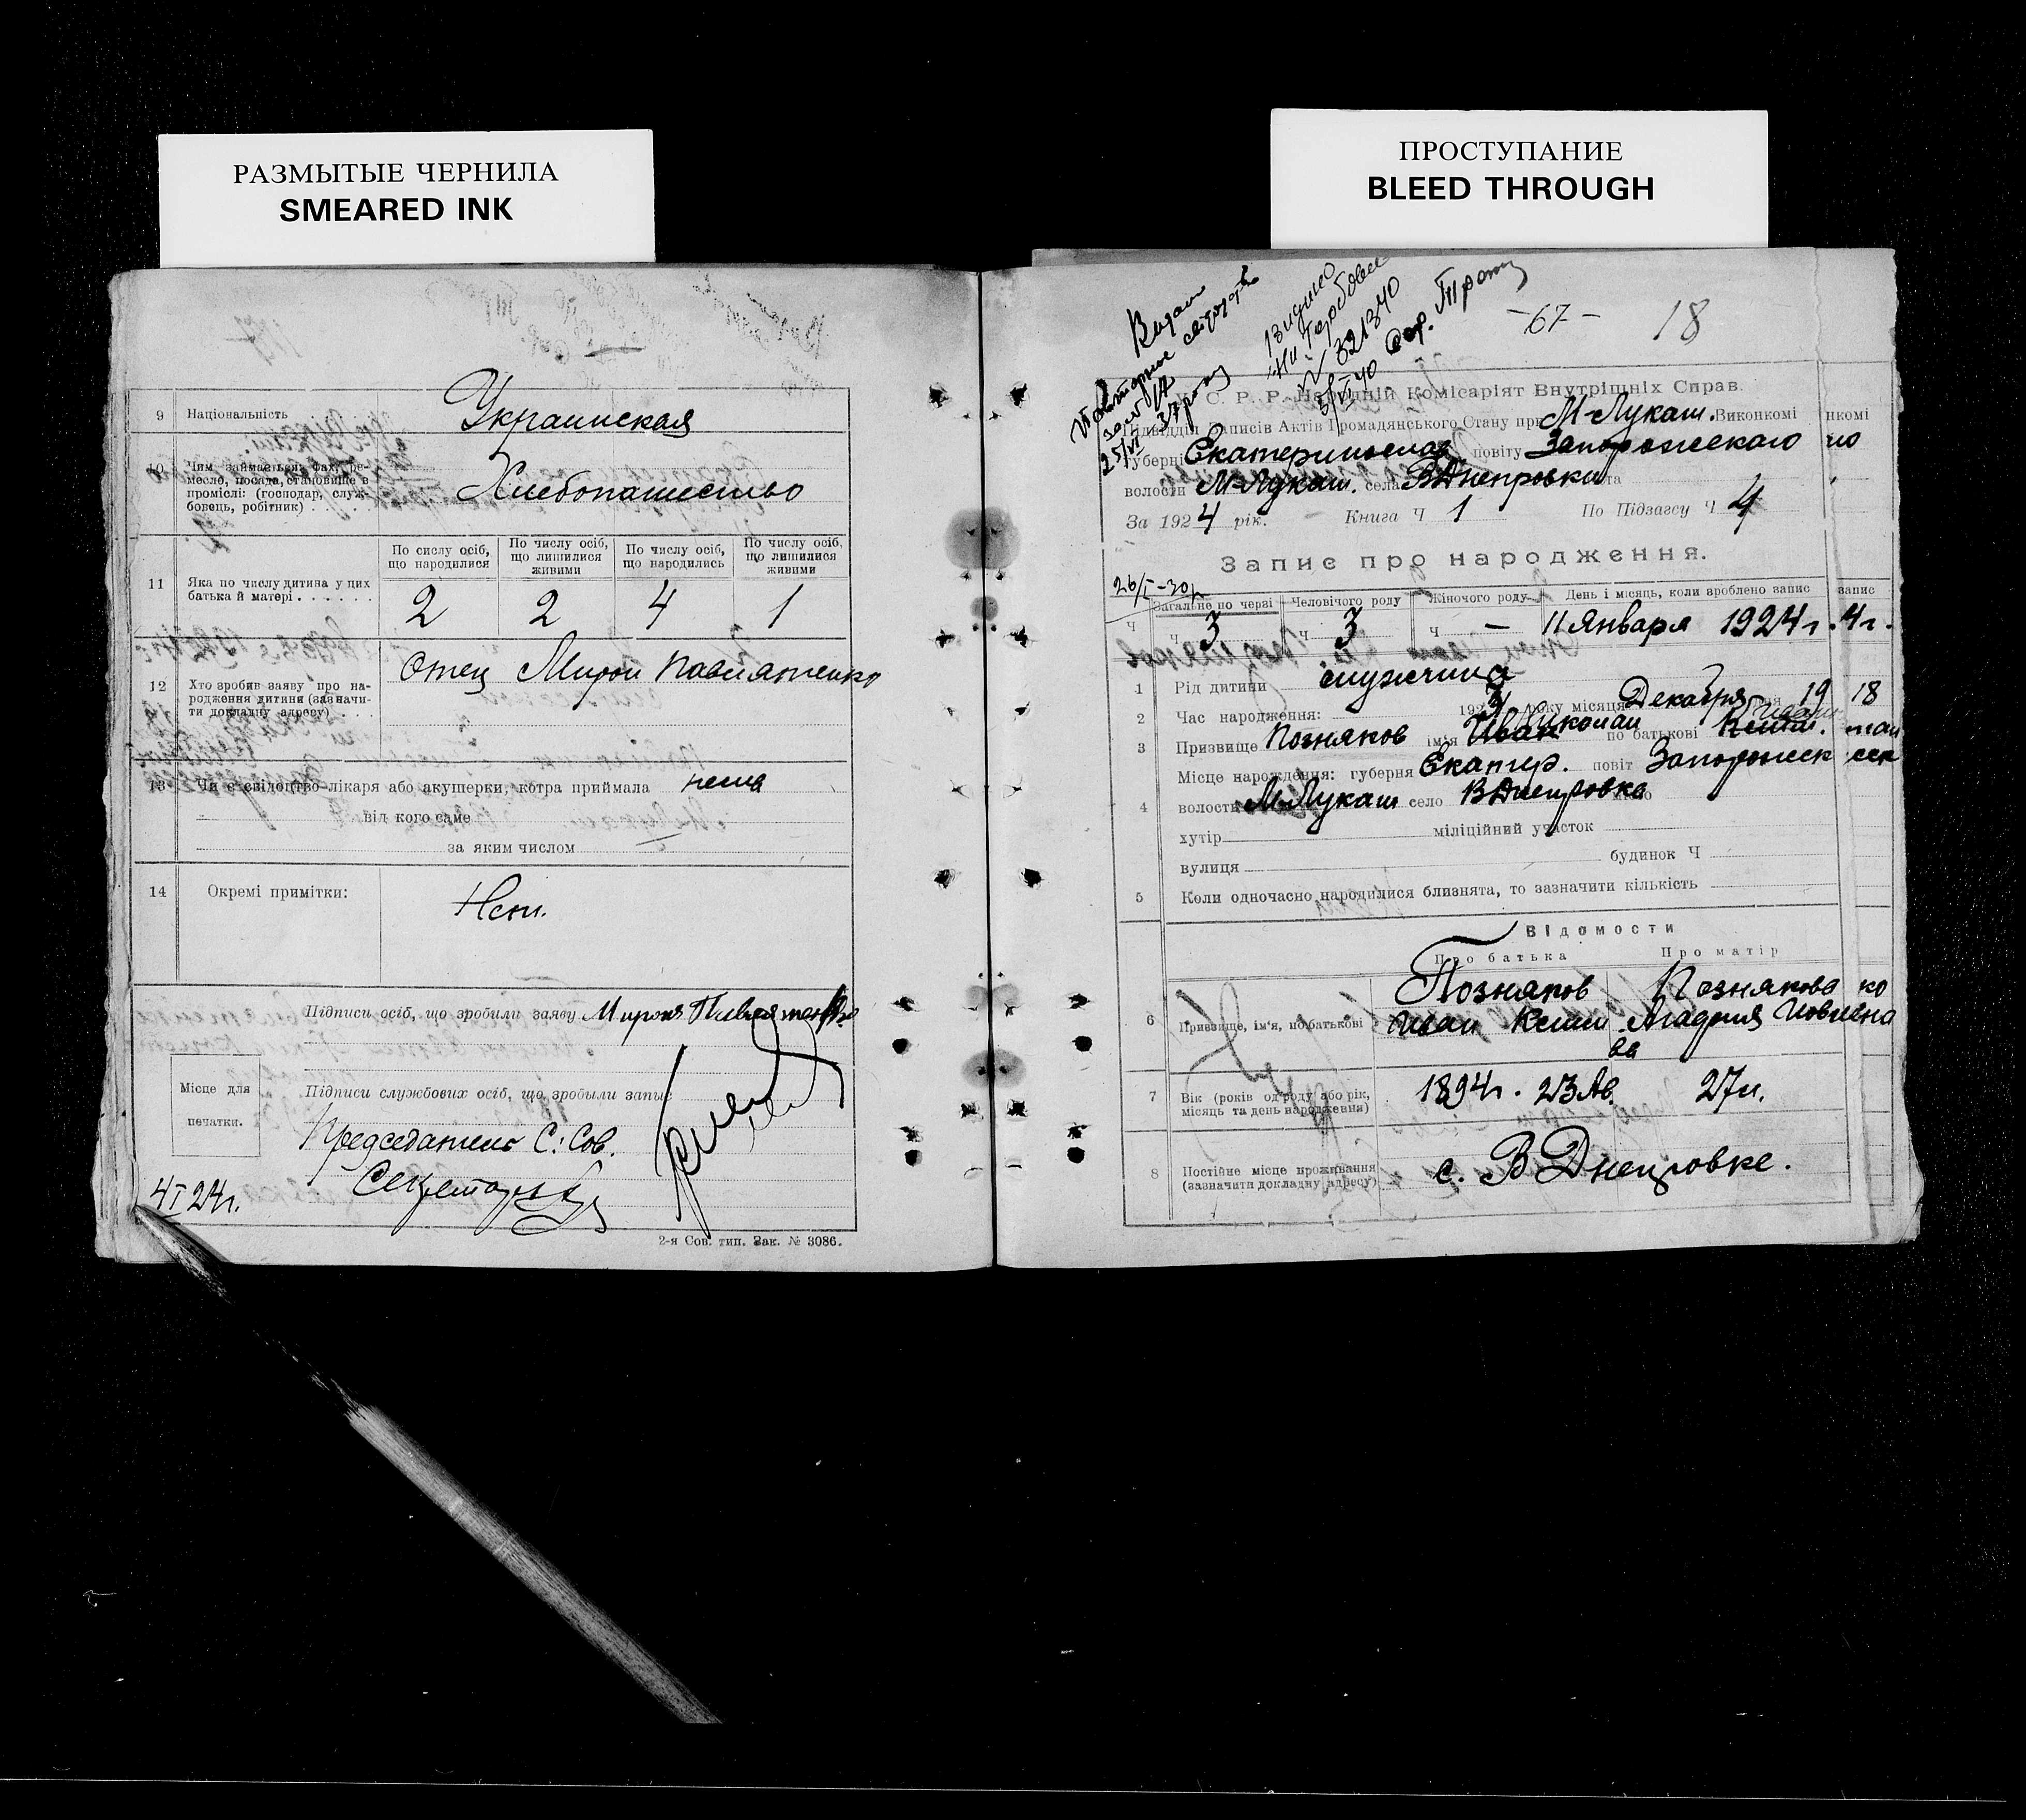 РАЗМЫТЫЕ ЧЕРНИЛА
SMEARED INK
ПРОСТУПАНИЕ
BLEED THROUGH
9 Національність Украинская
10 Чим займається: фах, ре-
месло, посада, становище в
промислі: (господар, служ-
бовець, робітник) Хлебопашество
11 Яка по числу дитина у цих
батька й матері
По числу осіб, що народилися
По числу осіб, що лишилися живими
По числу осіб, що народились
По числу осіб, що лишилися живими
2 2 4 1
12 Хто зробив заяву про на-
родження дитини (зазначи-
ти докладну адресу)
Отец Мирон Павлятенко
13 Чи є свідоцтво лікаря або акушерки, котра приймала нема
від кого саме
за яким числом
14 Окремі примітки: Нет.
Підписи осіб, що зробили заяву Мирон
Місце для
печатки.
Підписи службових осіб, що зробили запис
Председатель С. Сов.
Секретарь
4/I 24г.
2-я Сов. тип. Зак. № 3086.
Видано
свідоцтв
Повторне
25/VI 37 року
№ 321340
5/VI 40
-67- 18
С. Р. Р. Народній Комісаріят Внутрішніх Справ.
Підвідділ Записів Актів Громадянського Стану при М-Лукаш. Виконкомі нкомі
губерні Екатеринослав повіту Запорожскаго
волости М-Лукаш. села ВДнепровки
За 1924 рік. Книга Ч 1 По Підзагсу Ч 4
Запис про народження.
26/I-30г
Загальне по черзі Человічого роду Жіночого роду День і місяць, коли зроблено запис запис
Ч Ч 3 Ч 3 Ч — 11 Января 1924г. 4г.
1 Рід дитини мужчина
2 Час народження: 1923 року місяця Декабря дня 19 18
3 Призвище Позняков ім'я Иван Николай по батькові
Місце народження: губерня Екатер. повіт Запорожск
4 волость М-Лукаш село ВДнепровка
хутір міліційний участок
вулиця будинок Ч
5 Коли одночасно народилися близнята, то зазначити кількість
Відомости
Про батька Про матір
6 Призвище, ім'я, по батькові
Позняков Познякова ко
Иван
7 Вік (років од роду або рік,
місяць та день народження)
1894г. 23 Ав. 27л.
8 Постійне місце проживання
(зазначити докладну адресу)
с. В Днепровке.